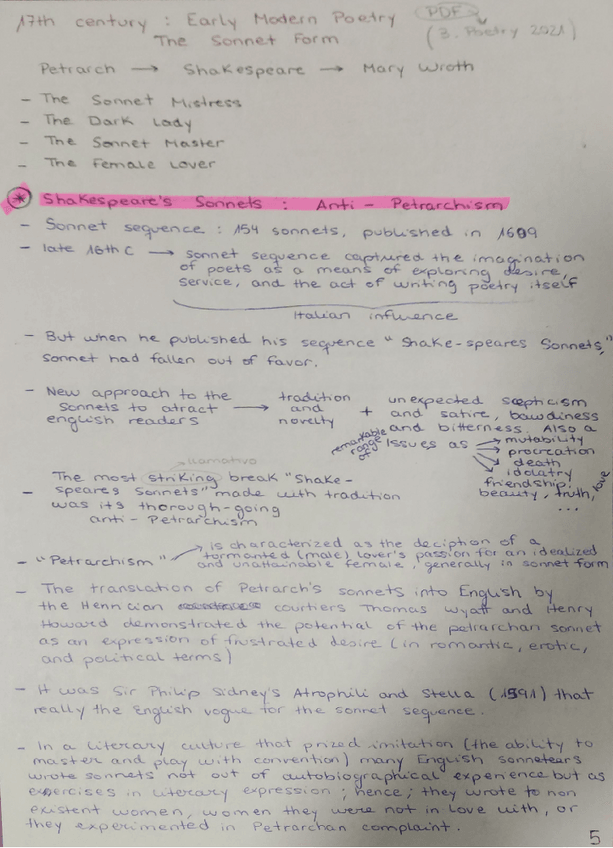 17th century : Early Modern Poetry PDF
The Sonnet Form (3. Poetry 2021)
Petrarch → Shakespeare → Mary Wroth
- The Sonnet Mistress
- The Dark Lady
- The Sonnet Master
- The Female Lover
* Shakespeare's Sonnets : Anti - Petrarchism
- Sonnet sequence : 154 sonnets, published in 1609
- late 16th C → sonnet sequence captured the imagination
of poets as a means of exploring desire,
service, and the act of writing poetry itself
Italian influence
- But when he published his sequence "Shake-speares Sonnets,"
sonnet had fallen out of favor.
- New approach to the → tradition + unexpected scepticism
sonnets to atract and and satire, bawdiness
english readers novelty and bitterness. Also a
remarkable range of issues as → mutability
→ procreation
→ death
idolatry
friendship!
beauty, truth, love
...
llamativo
- The most striking break "Shake-
speares Sonnets" made with tradition
was its thorough-going
anti - Petrarchism
- "Petrarchism" → is characterized as the deciption of a
tormanted (male) lover's passion for an idealized
and unattainable female, generally in sonnet form
- The translation of Petrarch's sonnets into English by
the Henrician courtiers Thomas Wyatt and Henry
Howard demonstrated the potential of the petrarchan sonnet
as an expression of frustrated desire (in romantic, erotic,
and political terms)
- It was Sir Philip Sidney's Atrophili and Stella (1591) that
really the English vogue for the sonnet sequence.
- In a literary culture that prized imitation (the ability to
master and play with convention) many English sonnetears
wrote sonnets not out of autobiographical experience but as
exercises in literary expression ; hence; they wrote to non
existent women, women they were not in love with, or
they experimented in Petrarchan complaint.
5